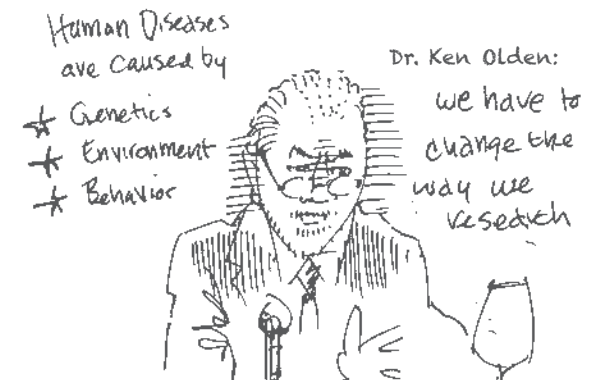 Human Diseases
are caused by
Genetics
Environment
Behavior
Dr. Ken Olden:
we have to
change the
way we
research